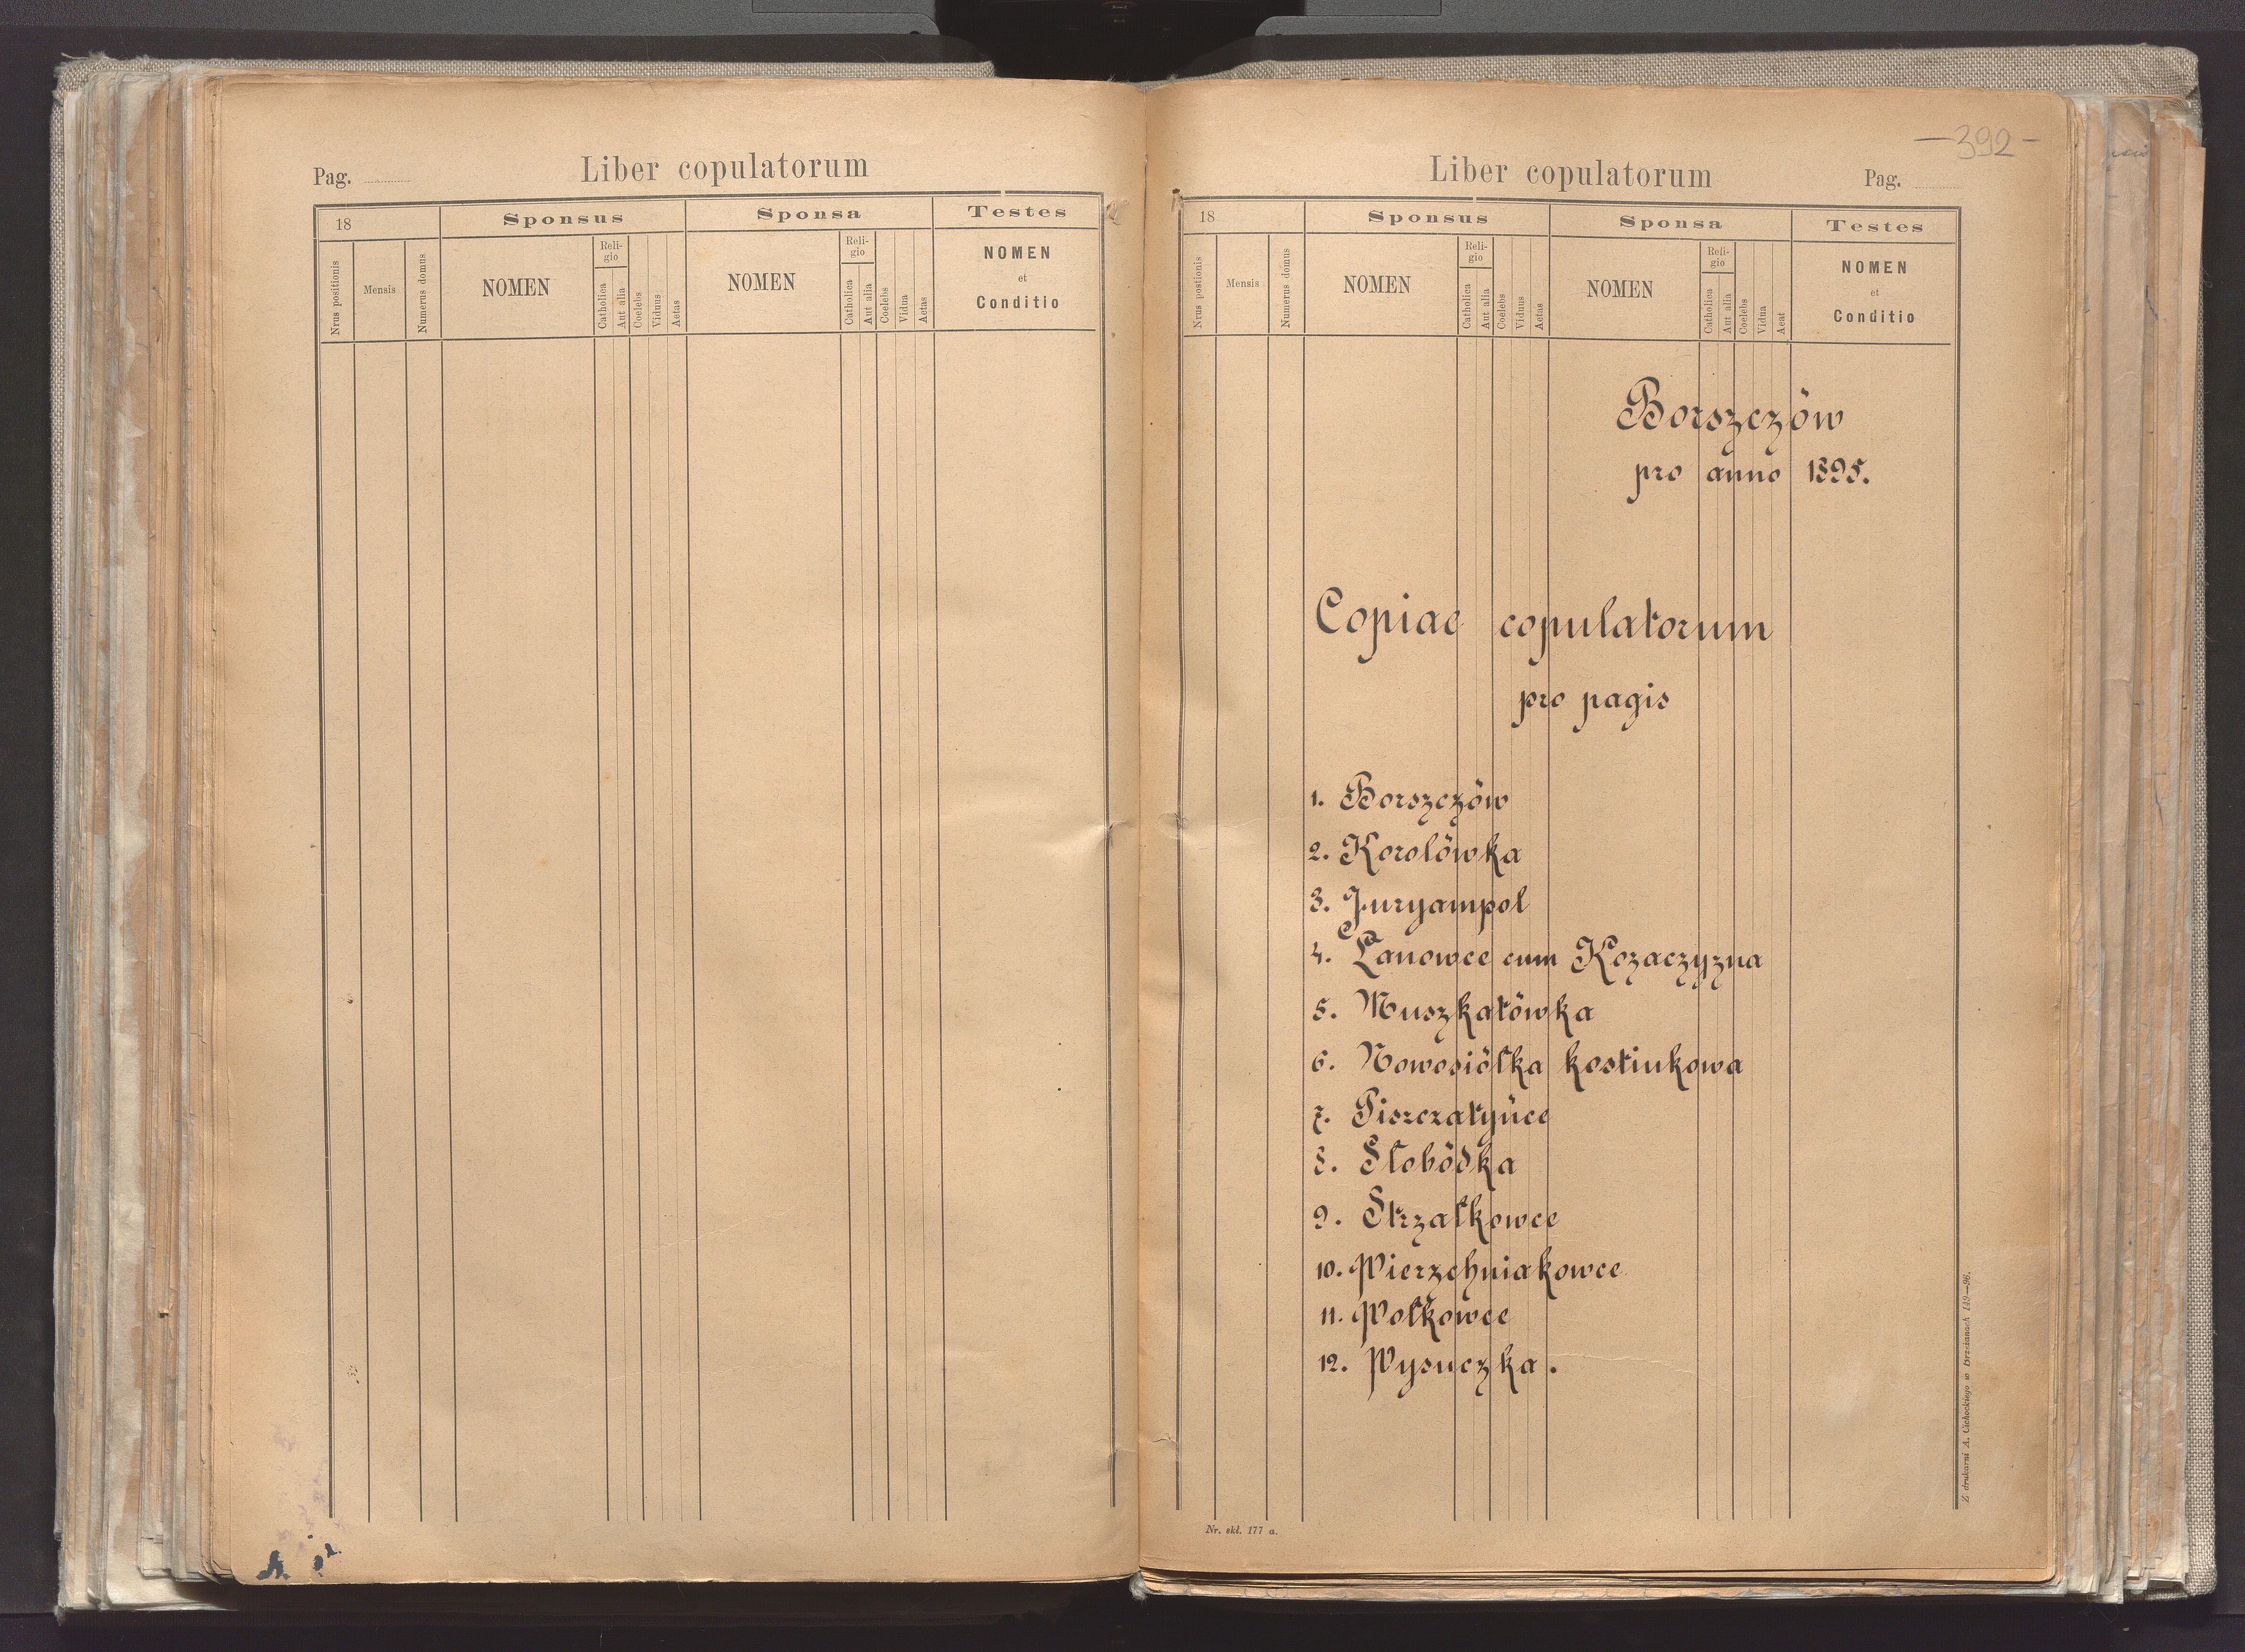 Pag.
Liber copulatorum
18
Sponsus
Sponsa
Testes
Nrus positionis
Mensis
Numerus domus
NOMEN
Reli-
gio
Catholica
Aut alia
Coelebs
Viduus
Aetas
NOMEN
Reli-
gio
Catholica
Aut alia
Coelebs
Vidua
Aetas
NOMEN
et
Conditio
—392—
Liber copulatorum
Pag.
18
Sponsus
Sponsa
Testes
Nrus positionis
Mensis
Numerus domus
NOMEN
Reli-
gio
Catholica
Aut alia
Coelebs
Viduus
Aetas
NOMEN
Reli-
gio
Catholica
Aut alia
Coelebs
Vidua
Aeat
NOMEN
et
Conditio
Borszczów
pro anno 1895.
Copiae copulatorum
pro pagis
1. Borszczów
2. Korolówka
3. Juryampol
4. Łanowce cum Kozaczyzna
5. Muszkatówka
6. Nowosiółka kostiukowa
7. Piszczatyńce
8. Słobódka
9. Strzałkowce
10. Wierzchniakowce
11. Wołkowce
12. Wysuczka.
Nr. skł. 177 a.
Z drukarni A. Cichockiego w Brzeżanach 149—96.